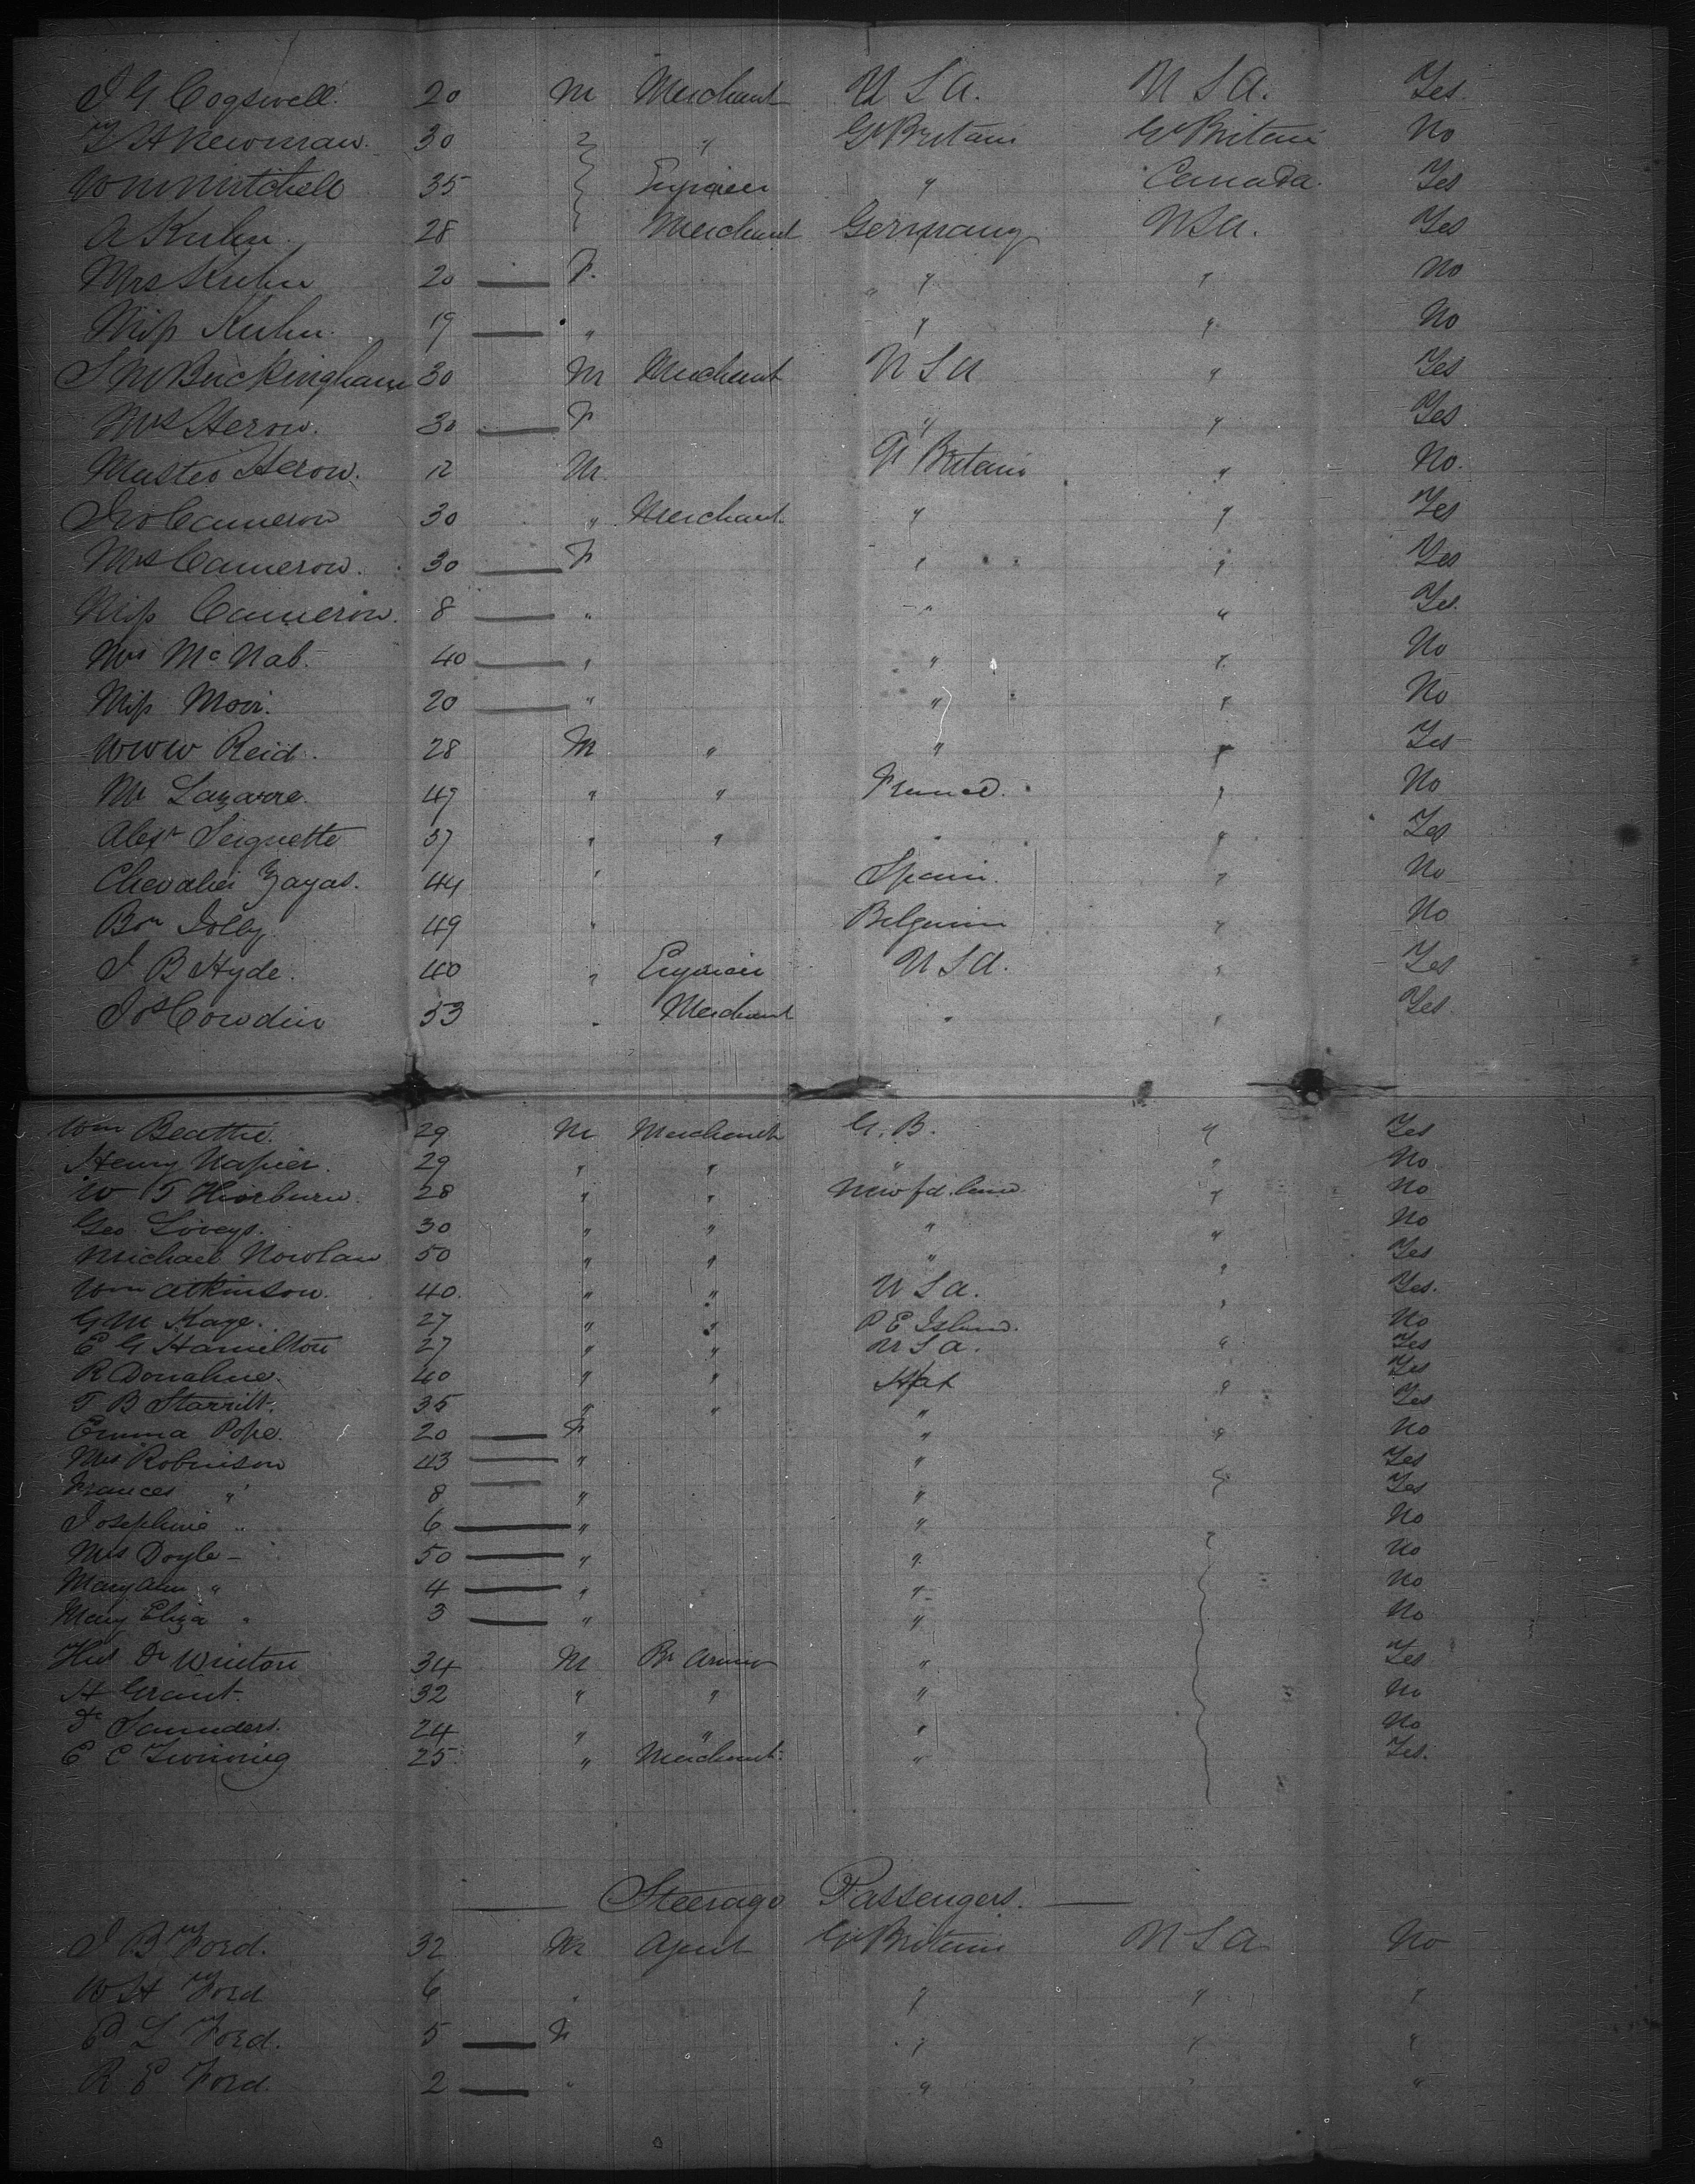 J G Cogswell. 20 M Merchant U S A. U S A. Yes.
T H Newman. 30 " " Gt Britain Gt Britain No
Wm Mitchell 35 Engineer " Canada. Yes
A Kuhn. 28 Merchant Germany USA. Yes
Mrs Kuhn 20 — F. " " No
Miss Kuhn. 19 — " " " No
S M Buckingham 30 M Merchant U S A " Yes
Mrs Heron. 30 — F " " Yes
Master Heron. 12 M. Gt Britain " No.
Jno Cameron 30 " Merchant. " " Yes
Mrs Cameron. 30 — F " " Yes
Miss Cameron. 8 — " " " Yes.
Mrs McNab. 40 — " " " No
Miss Moir. 20 — " " " No
Wm W Reid. 28 M " " " Yes
Mr Lazarre. 49 " " France. " No
Alexr Seignette 37 " " " " Yes
Chevalier Zayas. 44 " Spain. " No
Bon Jolly 49 " Belgium " No
J B Hyde. 40 " Engineer U S A. " Yes
Jos Cowdin 53 " Merchant " " Yes.
Wm Beattie. 29 M Merchant G. B. " Yes
Henry Napier. 29 " " " " No
W T Hiorburn. 28 " " Newfd.land " No
Geo. Loveys. 30 " " " " No
Michael Nowlan 50 " " " " Yes
Wm Atkinson. 40. " " U S A. " Yes.
G M Kaye. 27 " " P E Island. " No
E G Hamilton 27 " " U S A. " Yes
R Donahue. 40 " " Hfax " Yes
T B Starritt. 35 " " " " Yes
Emma Pope. 20 — F " " No
Mrs Robinson 43 — " " Yes
Frances " 8 — " " " Yes
Josephine " 6 — " " No
Mrs Doyle – 50 — " " " No
Mary Ann " 4 — " " No
Mary Eliza " 3 — " " No
Dr Winton 34 M Br Army " Yes
H Grant. 32 " " " No
F Saunders. 24 " " " No
E C Twining 25. " Merchant. " Yes.
— Steerage Passengers. —
J B Ford. 32 M Agent Gt Britain U S A No
W H Ford 6 " " " "
E L Ford. 5 — F " " "
R E Ford. 2 — " " " "